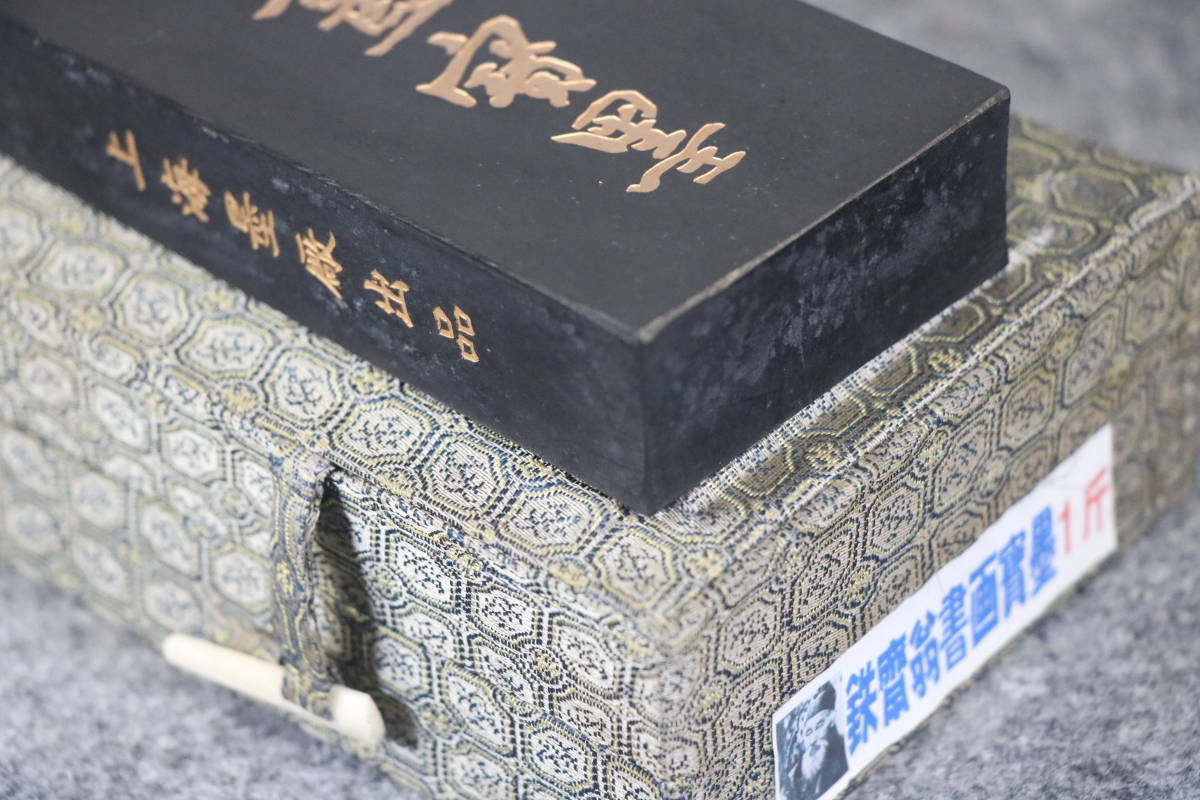 寶墨
上海墨厰出品
鉄齋翁書画寶墨1斤